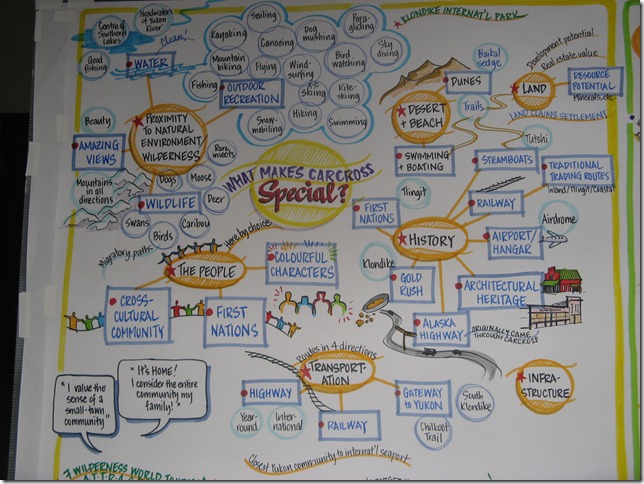 Centre of
Southern
Lakes
Headwaters
of Yukon
River
Clean!
Good
fishing
WATER
Kayaking
Sailing
Canoeing
Dog
mushing
Para-
gliding
Sky
diving
Mountain
biking
Flying
Wind-
surfing
Bird
watching
Fishing
OUTDOOR
RECREATION
skiing
Kite-
skiing
Snow-
mobiling
Hiking
Swimming
KLONDIKE INTERNAT'L PARK
Beauty
AMAZING
VIEWS
Mountains
in all
directions
PROXIMITY
TO NATURAL
ENVIRONMENT
WILDERNESS
Rare
insects
Dogs
Moose
Deer
WILDLIFE
Swans
Birds
Caribou
Migratory paths
WHAT MAKES CARCROSS
Special?
DESERT
+ BEACH
DUNES
Baikal
sedge
Trails
SWIMMING
+ BOATING
LAND
Development potential
Real estate value
RESOURCE
POTENTIAL
Minerals, etc.
LAND CLAIMS SETTLEMENT
HISTORY
FIRST
NATIONS
Tlingit
STEAMBOATS
Tutshi
TRADITIONAL
TRADING ROUTES
Inland/Tlingit/Coastal
RAILWAY
AIRPORT/
HANGAR
Airdrome
ARCHITECTURAL
HERITAGE
GOLD
RUSH
Klondike
ALASKA
HIGHWAY
ORIGINALLY CAME
THROUGH CARCROSS
THE PEOPLE
Here by choice
COLOURFUL
CHARACTERS
CROSS-
CULTURAL
COMMUNITY
FIRST
NATIONS
"I value the
sense of a
small-town
community"
"It's HOME!
I consider the entire
community my
family!"
Routes in 4 directions
TRANSPORT-
ATION
HIGHWAY
Year-
round
Inter-
national
RAILWAY
GATEWAY
TO YUKON
Chilkoot
Trail
South
Klondike
Closest Yukon community to internat'l seaport
INFRA-
STRUCTURE
7 WILDERNESS WORLD